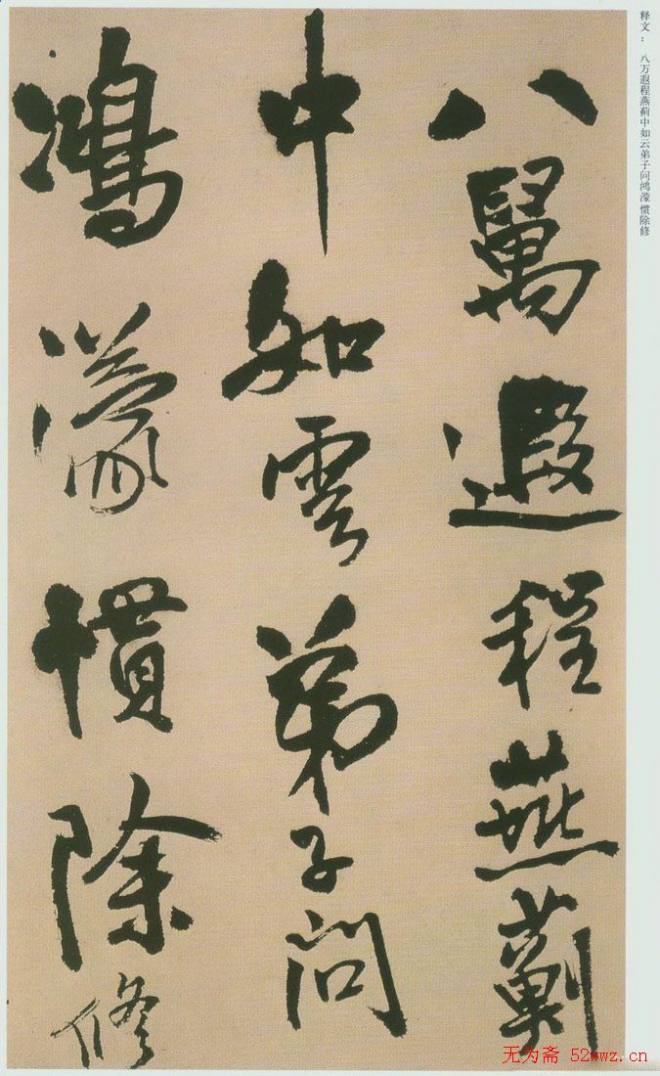 八萬遐程燕薊
中如雲弟子問
鴻濛慣除修
释文： 八万遐程燕蓟中如云弟子问鸿濛惯除修
无为斋 52wwz.cn